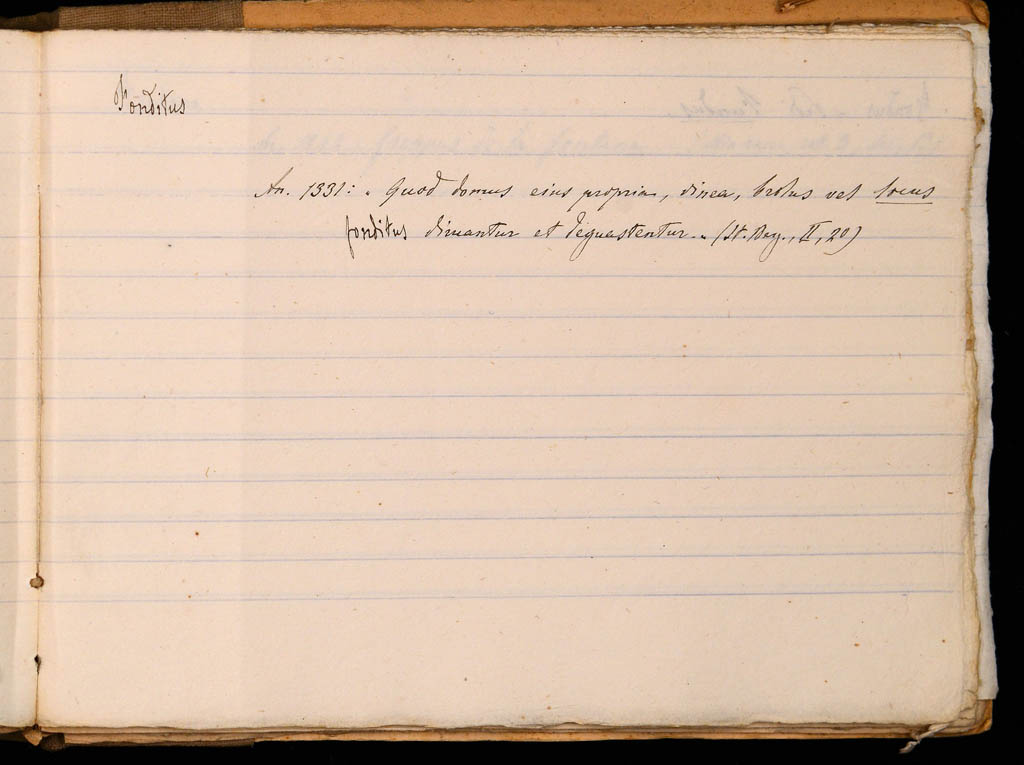 Fonditus
An. 1331: « Quod domus eius propria, vinea, brolus vel locus
fonditus diruantur et deguastentur. » (St. Berg., II, 20)